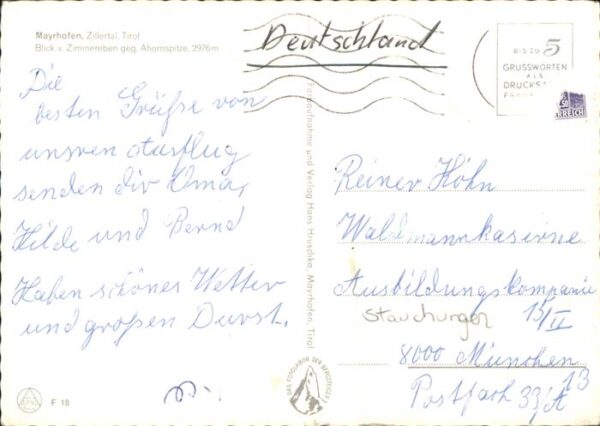 Mayrhofen, Zillertal, Tirol
Blick v. Zimmereben geg. Ahornspitze, 2976 m
Die
besten Grüße von
unsren Ausflug
senden dir Oma,
Hilde und Bernd
Haben schönes Wetter
und großen Durst.
F 18
Deutschland
BIS ZU 5
GRUSSWORTEN
ALS
DRUCKS
FRAN
ERREICH
Farbaufnahme und Verlag Hans Hruschka, Mayrhofen, Tirol
DAS FOTOLABOR DER BERGSTEIGER
Reiner Höhn
Waldmannkaserne
Ausbildungskompanie
15/II
8000 München
Postfach 33/A 13